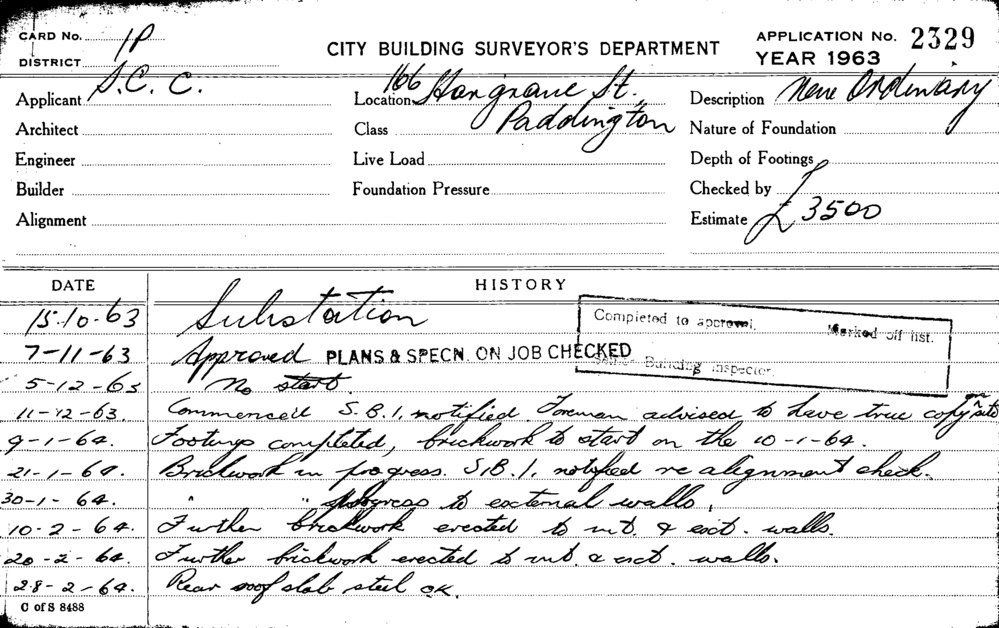 CARD No. 1P
CITY BUILDING SURVEYOR'S DEPARTMENT
APPLICATION No. 2329
DISTRICT
YEAR 1963
Applicant S. C. C.
Location 166 Hargrave St.
Description New Ordinary
Architect
Class Paddington
Nature of Foundation
Engineer
Live Load
Depth of Footings
Builder
Foundation Pressure
Checked by
Alignment
Estimate £3500
DATE HISTORY
15.10.63 Substation
Completed to approval. Marked off list.
7-11-63 Approved PLANS & SPECN. ON JOB CHECKED
Building Inspector.
5-12-63 No start
11-12-63. Commenced S.B.I. notified Foreman advised to have true copy on site
9-1-64. Footings completed, brickwork to start on the 10-1-64.
21-1-64. Brickwork in progress. S.B.I. notified re alignment check.
30-1-64. " " progress to external walls.
10-2-64. Further brickwork erected to int. & ext. walls.
20-2-64. Further brickwork erected to int. & ext. walls.
28-2-64. Rear roof slab steel OK.
C of S 8488